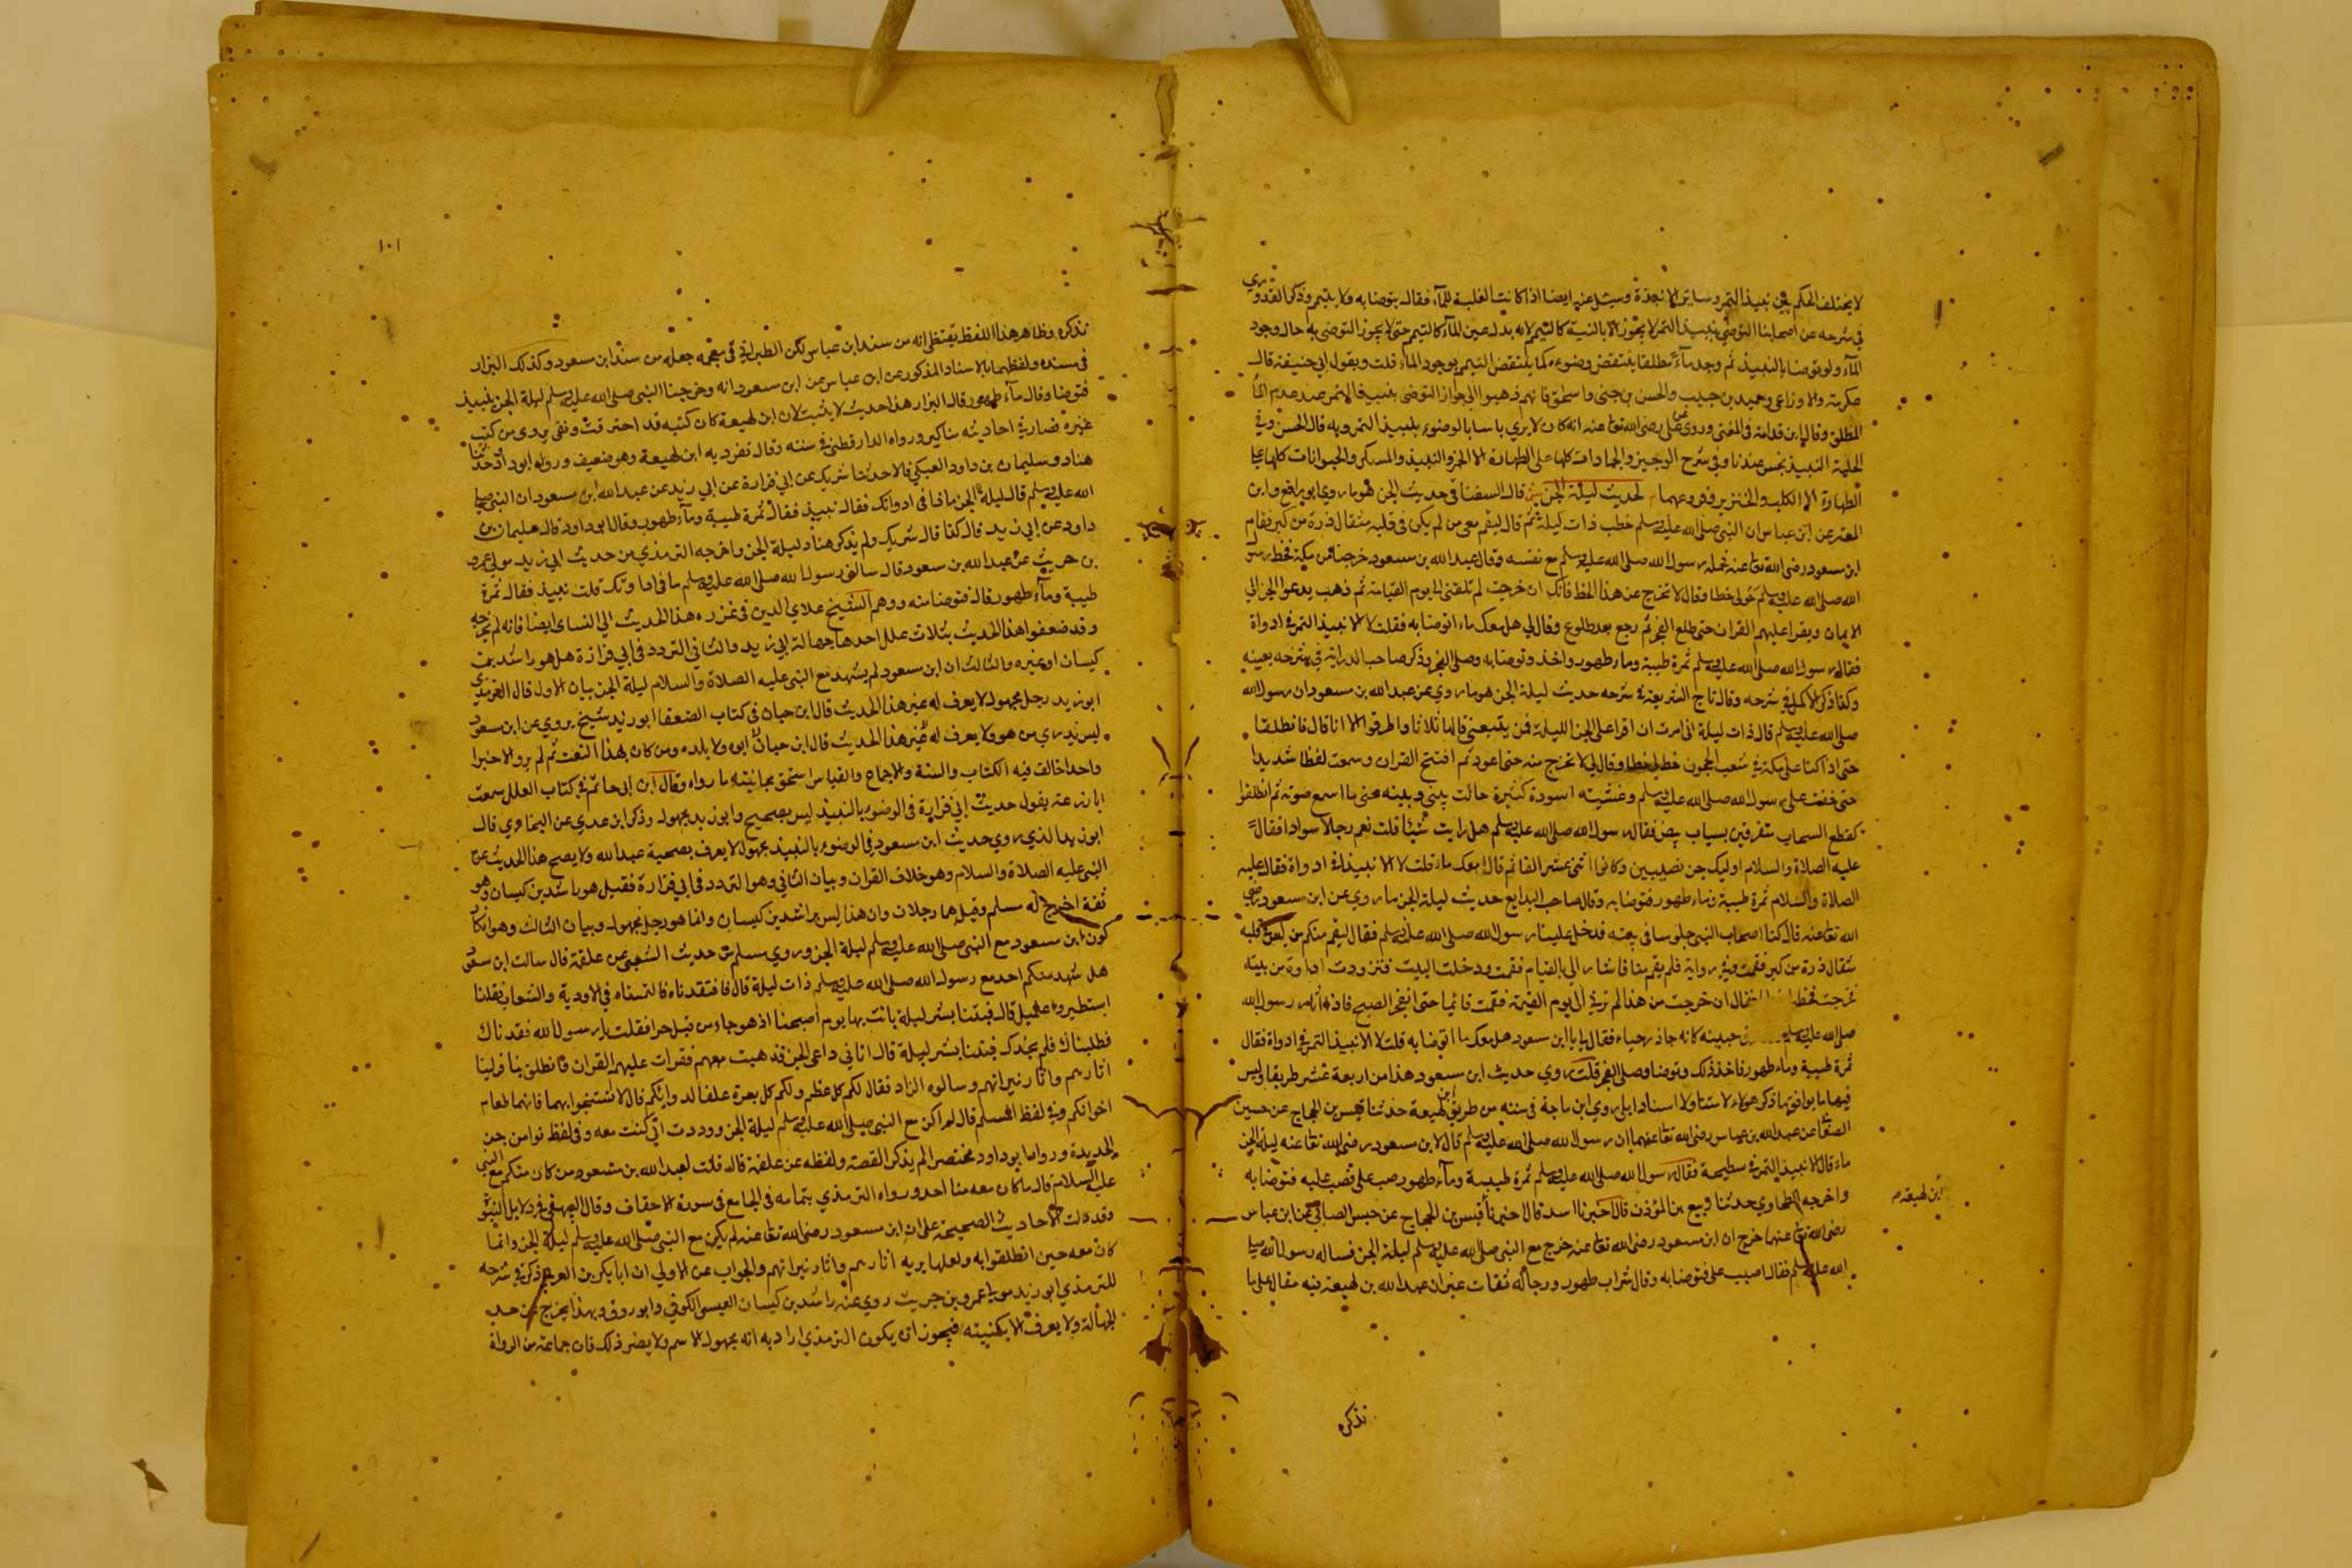 لا يختلف الحكم بين نبيذ التمر وسائر الانبذة وسئل عنه ايضا اذا كانت الغلبة للماء فقال يتوضا به ولا يتيمم وذكر القدوري
في شرحه عن اصحابنا التوضي بنبيذ التمر لا يجوز الا بالنية كالتيمم لانه بدل عن الماء كالتيمم حتى لا يجوز التوضي به حال وجود
الماء ولو توضا بالنبيذ ثم وجد ماء مطلقا ينتقض وضوءه كما ينتقض التيمم بوجود الماء قلت وبقول ابي حنيفة قال
عكرمة والاوزاعي وحميد بن حبيب والحسن بن حي واسحق فانهم ذهبوا الى جواز التوضي بنبيذ التمر عند عدم الماء
المطلق وقال ابن قدامة في المغني وروي عن علي رضي الله تعا عنه انه كان لا يرى باسا بالوضوء بنبيذ التمر وبه قال الحسن وفي
الحلية النبيذ نجس عندنا وفي شرح الوجيز والجمادات كلها على الطهارة الا الخمر والنبيذ والمسكر والحيوانات كلها على
الطهارة الا الكلب والخنزير وفروعهما لحديث ليلة الجن ش قال السغناقي حديث الجن هو ما روى ابو رافع وابن
المعتمر عن ابن عباس ان النبي صلى الله عليه وسلم خطب ذات ليلة ثم قال ليقم معي من لم يكن في قلبه مثقال ذرة من كبر فقام
ابن مسعود رضي الله تعا عنه فحمله رسول الله صلى الله عليه وسلم مع نفسه وقال عبد الله بن مسعود خرجنا من مكة فخط رسول
الله صلى الله عليه وسلم حولي خطا وقال لا تخرج عن هذا الخط فانك ان خرجت لم تلقني الى يوم القيامة ثم ذهب يدعو الجن الى
الايمان ويقرا عليهم القران حتى طلع الفجر ثم رجع بعد طلوع وقال لي هل معك ماء اتوضا به فقلت لا الا نبيذ التمر في ادواة
فقال رسول الله صلى الله عليه وسلم تمرة طيبة وماء طهور واخذ وتوضا به وصلى الفجر وذكر صاحب الدراية في شرحه بعينه
وكذا ذكر الاكمل في شرحه وقال تاج الشريعة في شرحه حديث ليلة الجن هو ما روي عن عبد الله بن مسعود ان رسول الله
صلى الله عليه وسلم قال ذات ليلة اني امرت ان اقرا على الجن الليلة فمن يتبعني قالها ثلاثا واطرقوا الا انا قال فانطلقنا
حتى اذا كنا على مكة في شعب الحجون خط لي خطا وقال لي لا تخرج منه حتى اعود ثم افتتح القران وسمعت لغطا شديدا
حتى خفت على رسول الله صلى الله عليه وسلم وغشيته اسودة كثيرة حالت بيني وبينه حتى ما اسمع صوته ثم انطلقوا
كقطع السحاب متفرقين بسياب بيض فقال رسول الله صلى الله عليه وسلم هل رايت شيئا قلت نعم رجالا سوادا فقال
عليه الصلاة والسلام اوليك جن نصيبين وكانوا اثني عشر الفا ثم قال امعك ماء قلت لا الا نبيذا في ادواة فقال عليه
الصلاة والسلام تمرة طيبة وماء طهور فتوضا به وقال صاحب البدايع حديث ليلة الجن ما روي عن ابن مسعود رضي
الله تعا عنه قال كنا اصحاب النبي جلوسا في بيته فدخل علينا رسول الله صلى الله عليه وسلم فقال ليقم منكم من ليس في قلبه
مثقال ذرة من كبر فقمت وفي رواية فلم يقم منا فاشار الي بالقيام فقمت ودخلت البيت فتزودت اداوة من بيته
فخرجت فخط فقال ان خرجت من هذا لم ترني الى يوم القيمة فقمت قائما حتى انفجر الصبح فاذا انا برسول الله
صلى الله عليه وسلم جبينه كانه حاذر حياء فقال لي يا ابن مسعود هل معك ما اتوضا به قلت لا الا نبيذ التمر في ادواة فقال
تمرة طيبة وماء طهور فاخذ ذلك وتوضا وصلى الفجر قلت روي حديث ابن مسعود هذا من اربعة عشر طريقا وليس
فيها ما يوافق ما ذكر هولاء لا متنا ولا اسنادا بل روى ابن ماجة في سننه من طريق ابن لهيعة حدثنا قيس بن الحجاج عن حسين
الصنعا عن عبد الله بن عباس رضي الله تعا عنهما ان رسول الله صلى الله عليه وسلم قال لابن مسعود رضي الله تعا عنه ليلة الجن
ماء قال لا نبيذ التمر في سطيحة فقال رسول الله صلى الله عليه وسلم تمرة طيبة وماء طهور صب علي فصب عليه فتوضا به
واخرجه الطحاوي حدثنا ربيع بن المؤذن قال اخبرنا اسد قال اخبرنا قيس بن الحجاج عن حبس الصنعاني عن ابن عباس
رضي الله تعا عنهما خرج ان ابن مسعود رضي الله تعا عنه خرج مع النبي صلى الله عليه وسلم ليلة الجن فساله رسول الله صلى
الله عليه وسلم فقال اصبب علي فتوضا به وقال شراب طهور ورجاله ثقات غير ان عبد الله بن لهيعة فيه مقال على ما
ابن لهيعة م
نذكره
١٠١
نذكره وظاهر هذا اللفظ يقتضي انه من سند ابن عباس لكن الطبراني في معجمه جعله من سند ابن مسعود وكذلك البزار
في سنده ولفظهما بالاسناد المذكور عن ابن عباس عن ابن مسعود انه وخرجنا النبي صلى الله عليه وسلم ليلة الجن بنبيذ
فتوضا وقال ماء طهور قال البزار هذا حديث لا يثبت لان ابن لهيعة كان كتبه قد احترقت وبقي يروي من كتب
غيره فصار في احاديثه مناكير ورواه الدارقطني في سننه وقال تفرد به ابن لهيعة وهو ضعيف ورواه ابو داود حدثنا
هناد وسليمان بن داود العتكي قالا حدثنا شريك عن ابي فزارة عن ابي زيد عن عبد الله ابن مسعود ان النبي صلى
الله عليه وسلم قال ليلة الجن ما ذا في ادواتك فقال نبيذ فقال تمرة طيبة وماء طهور وقال ابو داود قال سليمان بن
داود عن ابي زيد قال كذا قال شريك ولم يذكر هناد ليلة الجن واخرجه الترمذي من حديث ابي زيد مولى عمرو
بن حريث عن عبد الله بن مسعود قال سالني رسول الله صلى الله عليه وسلم ما في اداوتك قلت نبيذ فقال تمرة
طيبة وماء طهور قال فتوضا منه ووهم الشيخ علاي الدين في عزره هذا الحديث الى النساى ايضا فانه لم يخرجه
وقد ضعفوا هذا الحديث بثلاث علل احدها جهالة ابي زيد والثاني التردد في ابي فزارة هل هو راشد بن
كيسان او غيره والثالث ان ابن مسعود لم يشهد مع النبي عليه الصلاة والسلام ليلة الجن بيان الاول قال الترمذي
ابو زيد رجل مجهول لا يعرف له غير هذا الحديث قال ابن حبان في كتاب الضعفا ابو زيد شيخ يروي عن ابن مسعود
ليس ندري من هو ولا يعرف له غير هذا الحديث قال ابن حبان ابوه ولا بلده ومن كان بهذا النعت ثم لم يرو الا خبرا
واحدا خالف فيه الكتاب والسنة والاجماع والقياس استحق مجانبته ما رواه وقال ابن ابي حاتم في كتاب العلل سمعت
ابا زرعة يقول حديث ابي فزارة في الوضوء بالنبيذ ليس بصحيح وابو زيد مجهول وذكر ابن عدي عن البخاري قال
ابو زيد الذي روى حديث ابن مسعود في الوضوء بالنبيذ مجهول لا يعرف بصحبة عبد الله ولا يصح هذا الحديث عن
النبي عليه الصلاة والسلام وهو خلاف القران وبيان الثاني وهو التردد في ابي فزارة فقيل هو راشد بن كيسان وهو
ثقة اخرج له مسلم وقيل هما رجلان وان هذا ليس براشد بن كيسان وانما هو رجل مجهول وبيان الثالث وهو انكار
كون ابن مسعود مع النبي صلى الله عليه وسلم ليلة الجن وروى مسلم من حديث الشعبي عن علقمة قال سالت ابن مسعود
هل شهد منكم احد مع رسول الله صلى الله عليه وسلم ذات ليلة قال فافتقدناه فالتمسناه في الاودية والشعاب فقلنا
استطير واغتيل قال فبتنا بشر ليلة باتت بها يوم اصبحنا اذ هو جاء من قبل حرا فقلت يا رسول الله فقدناك
فطلبناك فلم نجدك فبتنا بشر ليلة قال اتاني داعي الجن فذهبت معهم فقرات عليهم القران فانطلق بنا فرينا
اثارهم واثار نيرانهم وسالوه الزاد فقال لكم كل عظم ولكم كل بعرة علفا لدوابكم قال لا تستنجوا بهما فانهما طعام
اخوانكم وفي لفظ لمسلم قال لم اكن مع النبي صلى الله عليه وسلم ليلة الجن ووددت اني كنت معه وفي لفظ نوا من جن
الجزيرة ورواه ابو داود مختصرا لم يذكر القصة ولفظه عن علقمة قال قلت لعبد الله بن مسعود من كان منكم مع النبي
عليه السلام قال ما كان معه منا احد ورواه الترمذي بتمامه في الجامع في سورة الاحقاف وقال البيهقي في دلايل النبوة
وقد دلت الاحاديث الصحيحة على ان ابن مسعود رضي الله تعا عنه لم يكن مع النبي صلى الله عليه وسلم ليلة الجن وانما
كان معه حين انطلقوا به ولعلها يريه اثارهم واثار نيرانهم والجواب عن الاولى ان ابا بكر بن العربي ذكر في شرحه
للترمذي ابو زيد مولى عمرو بن حريث روى عنه راشد بن كيسان العبسي الكوفي وابو روق وبهذا يخرج عن حد
الجهالة ولا يعرف الا بكنيته فيجوز ان يكون الترمذي اراد به انه مجهول الاسم ولا يضر ذلك فان جماعة من الرواة